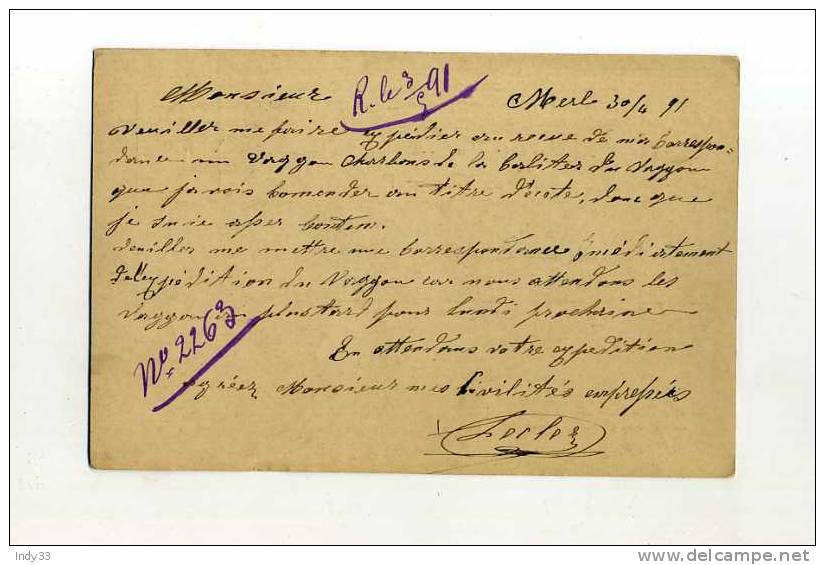 Monsieur R. le 3/5 91 Merl 30/4 91
Veuillez me faire expédier au reçue de ma Correspon-
dance un Vaggon Charbons de la Calités du Vaggon
que j'avois Comender au titre d'éste, donc que
je suie asser Conten.
Veuillez me mettre une Correspondance imédiartement
de l'expédition du Vaggon car nous attendons les
Vaggon au plustard pour lundi prochaine
No. 2263
En attendans votre expedition
agréez Monsieur mes Civilités empressés